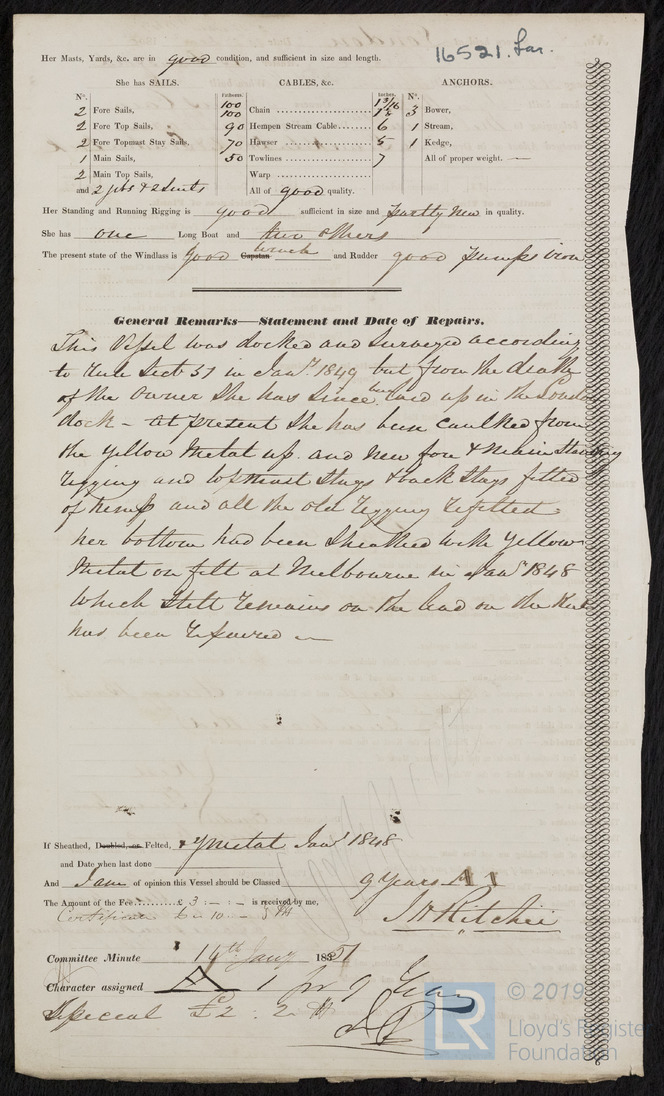 16521. Lon.
Her Masts, Yards, &c. are in good condition, and sufficient in size and length.
She has SAILS. CABLES, &c. ANCHORS.
No. Fathoms. Inches. No.
2 Fore Sails, 100 100 Chain 1 3/16 3 Bower,
2 Fore Top Sails, 90 Hempen Stream Cable 6 1 Stream,
2 Fore Topmast Stay Sails, 70 Hawser 5 1 Kedge,
1 Main Sails, 50 Towlines 7 All of proper weight.
2 Main Top Sails, Warp
and 2 jibs & 2 All of good quality.
Her Standing and Running Rigging is good sufficient in size and partly New in quality.
She has one Long Boat and two others
The present state of the Windlass is good Capstan winch and Rudder good Pumps iron
General Remarks—Statement and Date of Repairs.
This Vessel was docked and surveyed according
to Rule Sect 57 in Jany 1849 but from the death
of the Owner She has since been laid up in the London
dock - at present She has been caulked from
the yellow Metal up. and New fore & Main Standing
rigging and topmast Stays & back Stays fitted
of hemp and all the old rigging refitted
her bottom had been Sheathed with yellow
Metal on felt at Melbourne in Jany 1848
which Still remains on the lead on the Keel
has been repaired
If Sheathed, Doubled, or Felted, & y metal Jany 1848
and Date when last done
And I am of opinion this Vessel should be Classed 9 years A 1
The Amount of the Fee £ 3 : - : - is received by me,
Certificate 10
J H Ritchie
Committee Minute 14th Jany 1851
Character assigned A 1 for 9 Years
Special £2 : 2
© 2019
LR
Lloyd's Register
Foundation